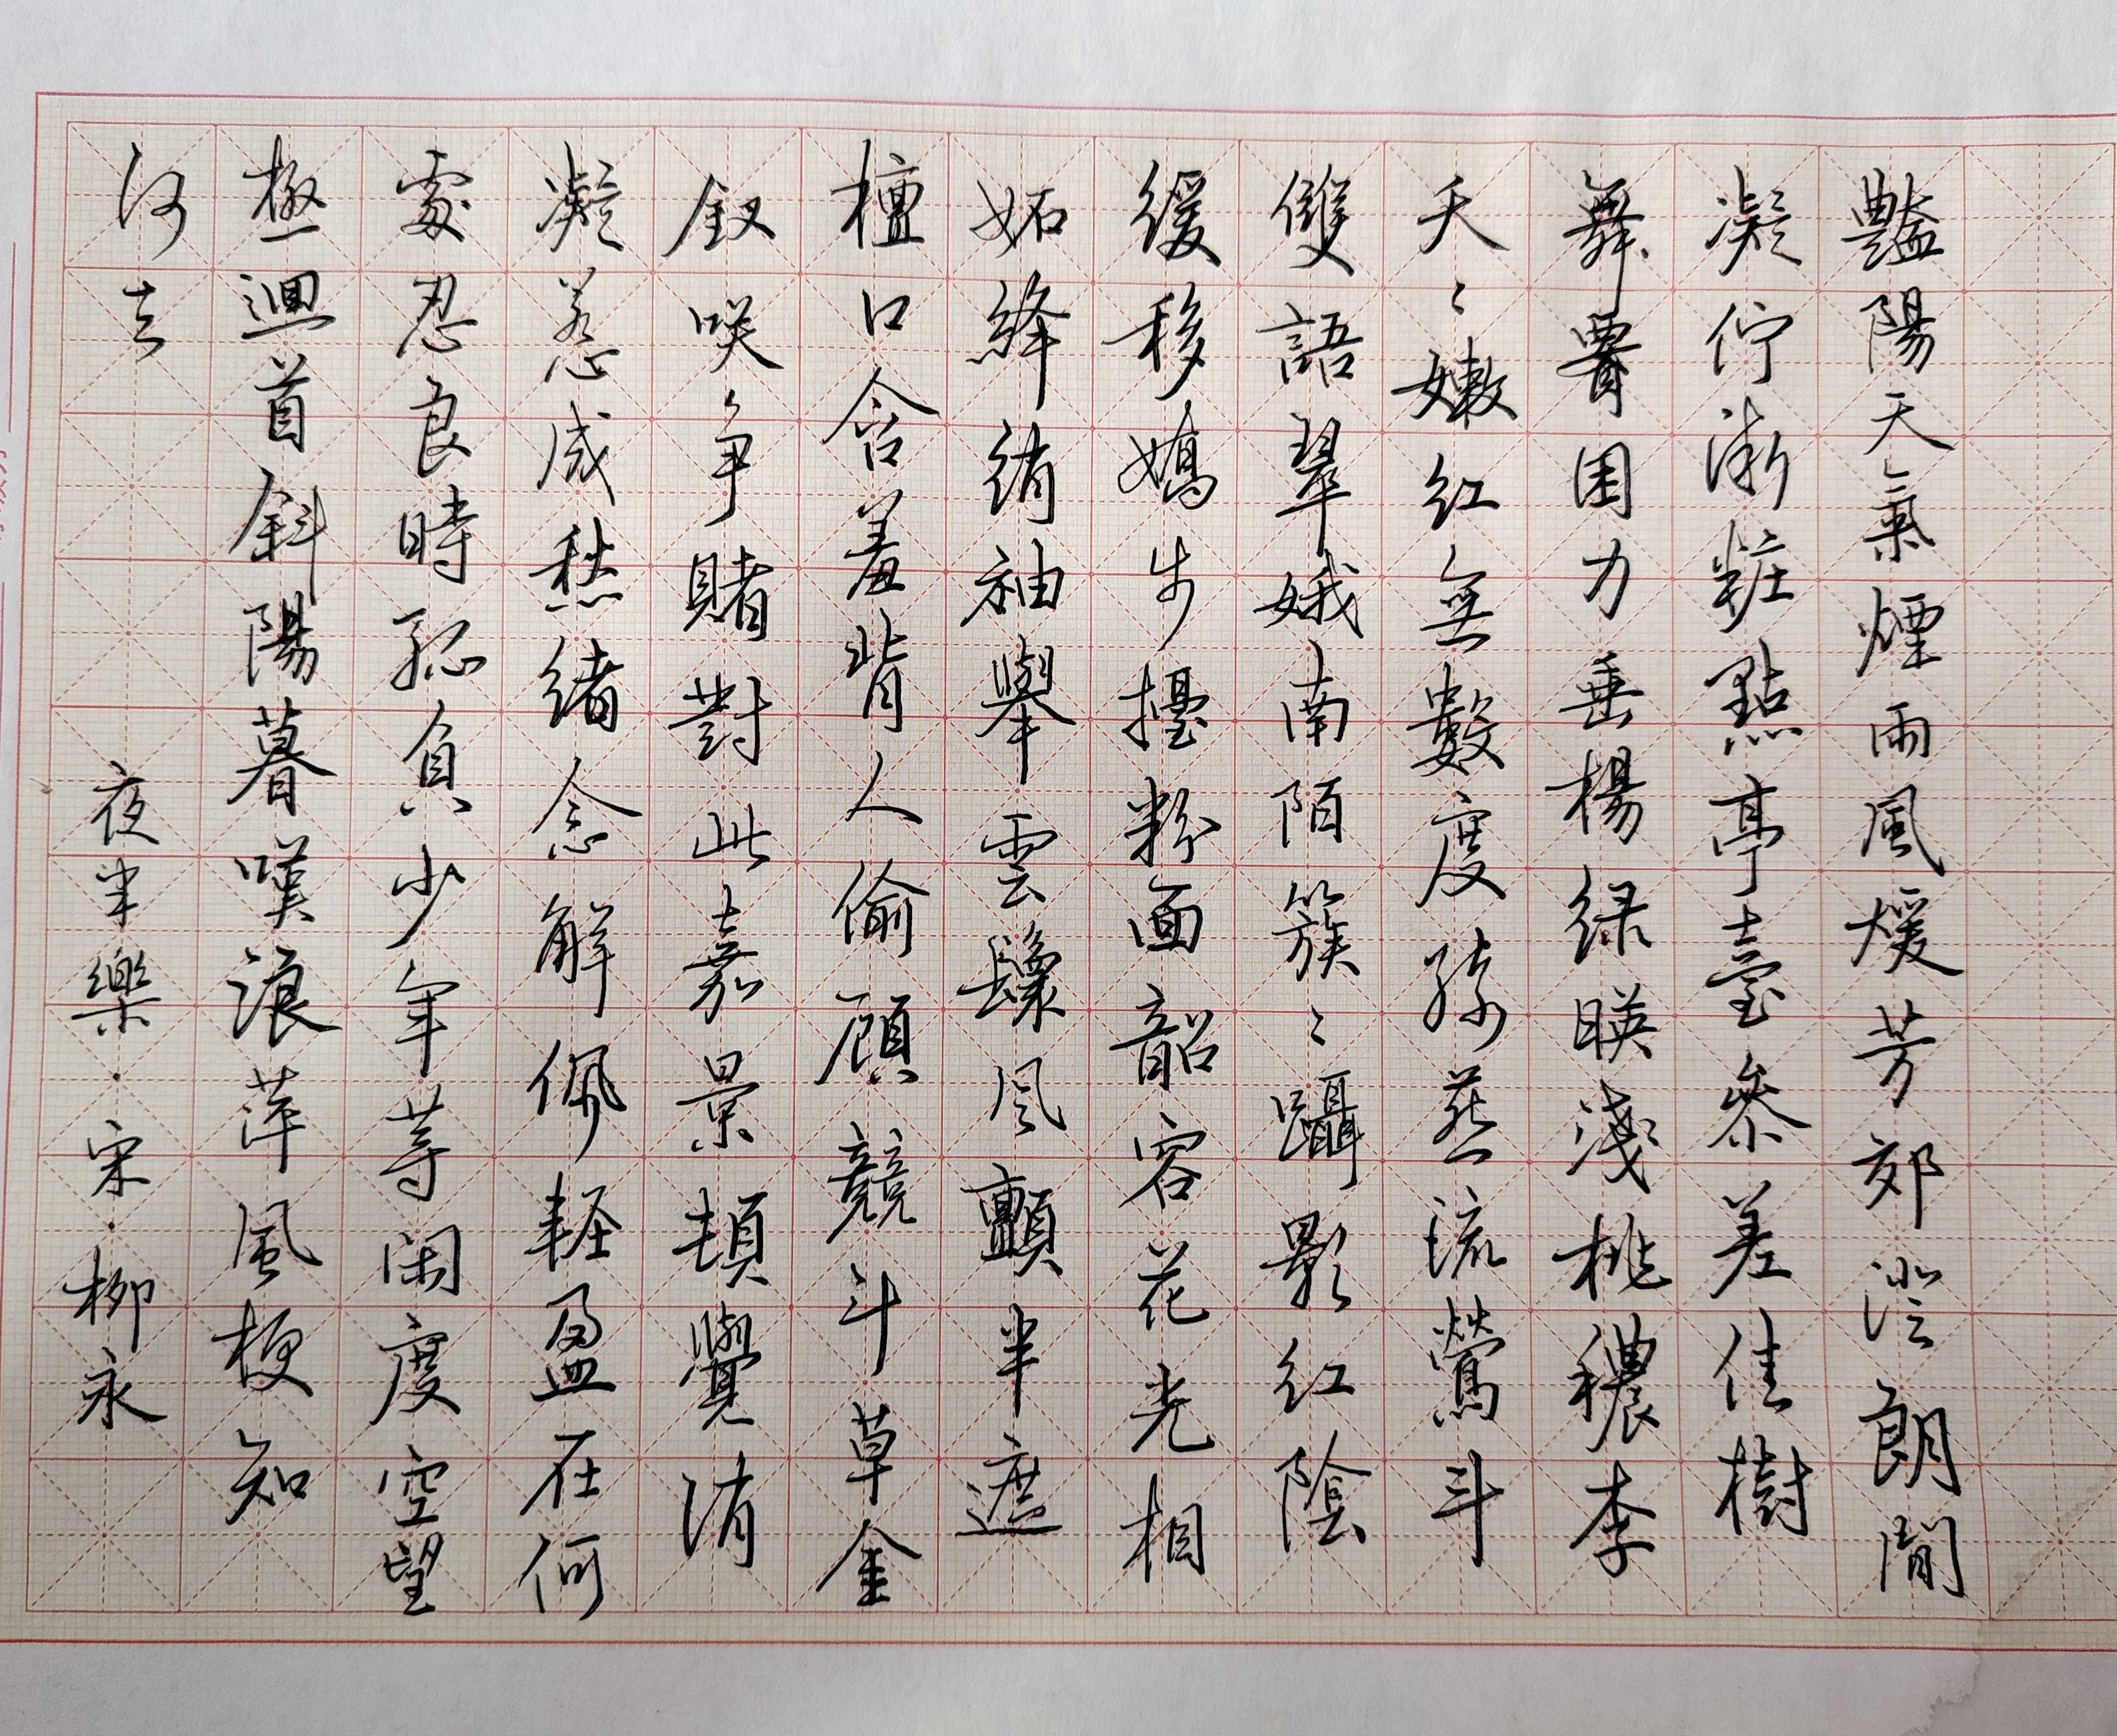 豔陽天氣煙雨風煖芳郊澄朗閒
凝佇漸粧點亭臺參差佳樹
舞腰困力垂楊绿暎淺桃穠李
夭〻嫩红無數度绮燕流鶯斗
雙語翠娥南陌簇〻躡影红陰
緩移嬌步擡粉面韶容花光相
妬絳绡袖舉雲鬟風顫半遮
檀口含羞背人偷顧競斗草金
釵咲争賭對此嘉景頓覺消
凝惹成愁緒念解佩輕盈在何
處忍良時孤負少年等閑度空望
極迴首斜陽暮嘆浪萍風梗知
何去
夜半樂·宋·柳永